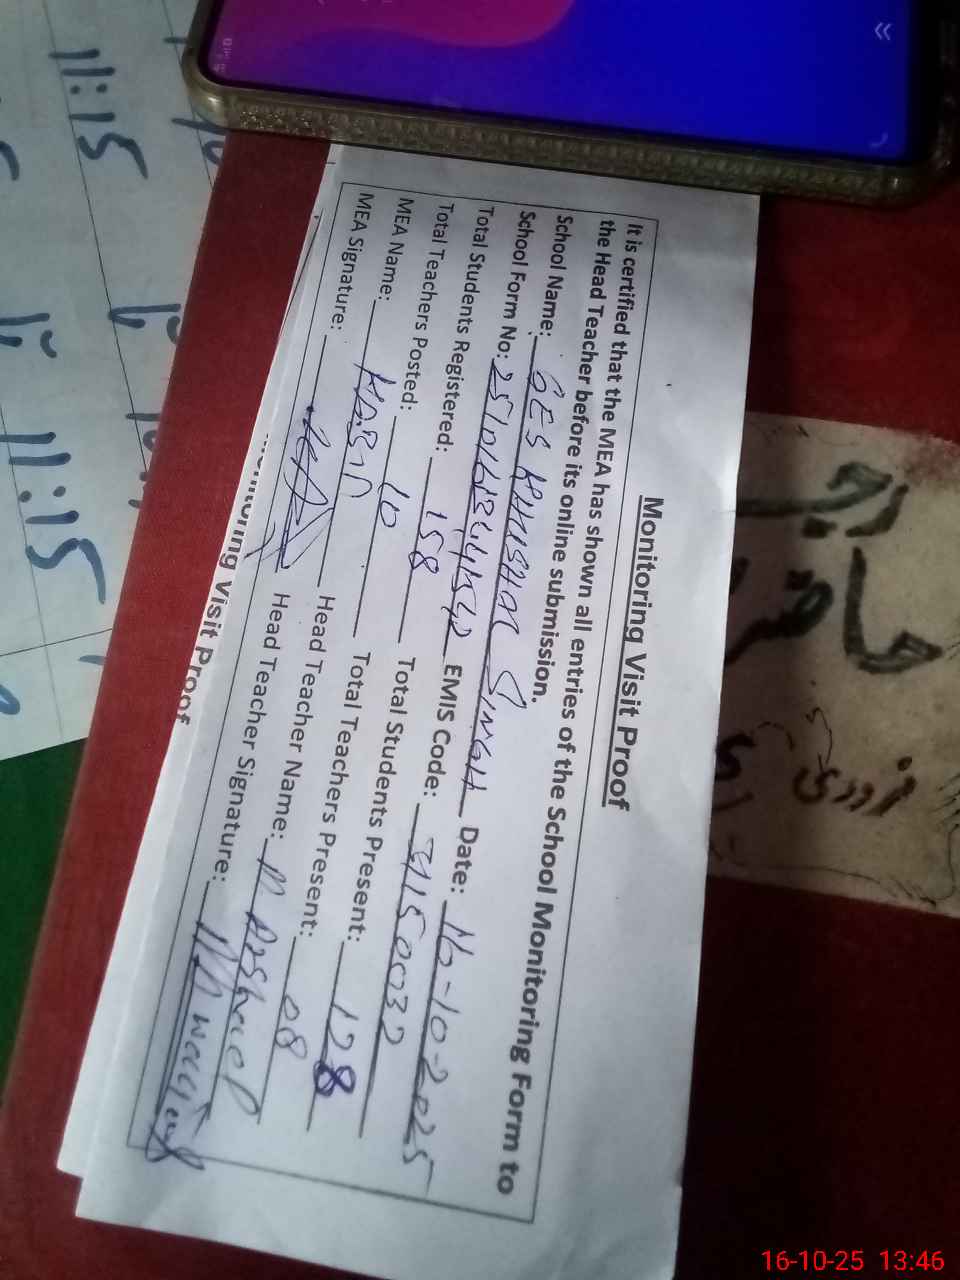 Monitoring Visit Proof
It is certified that the MEA has shown all entries of the School Monitoring Form to
the Head Teacher before its online submission.
School Name: GES KHUSHAL SINGH Date: 16-10-2025
School Form No: EMIS Code: 31150032
Total Students Registered: 158 Total Students Present: 128
Total Teachers Posted: 10 Total Teachers Present: 08
MEA Name: HABIB Head Teacher Name: M Arshad
MEA Signature: Head Teacher Signature:
Monitoring Visit Proof
11:15
11:15
حاضر
16-10-25 13:46